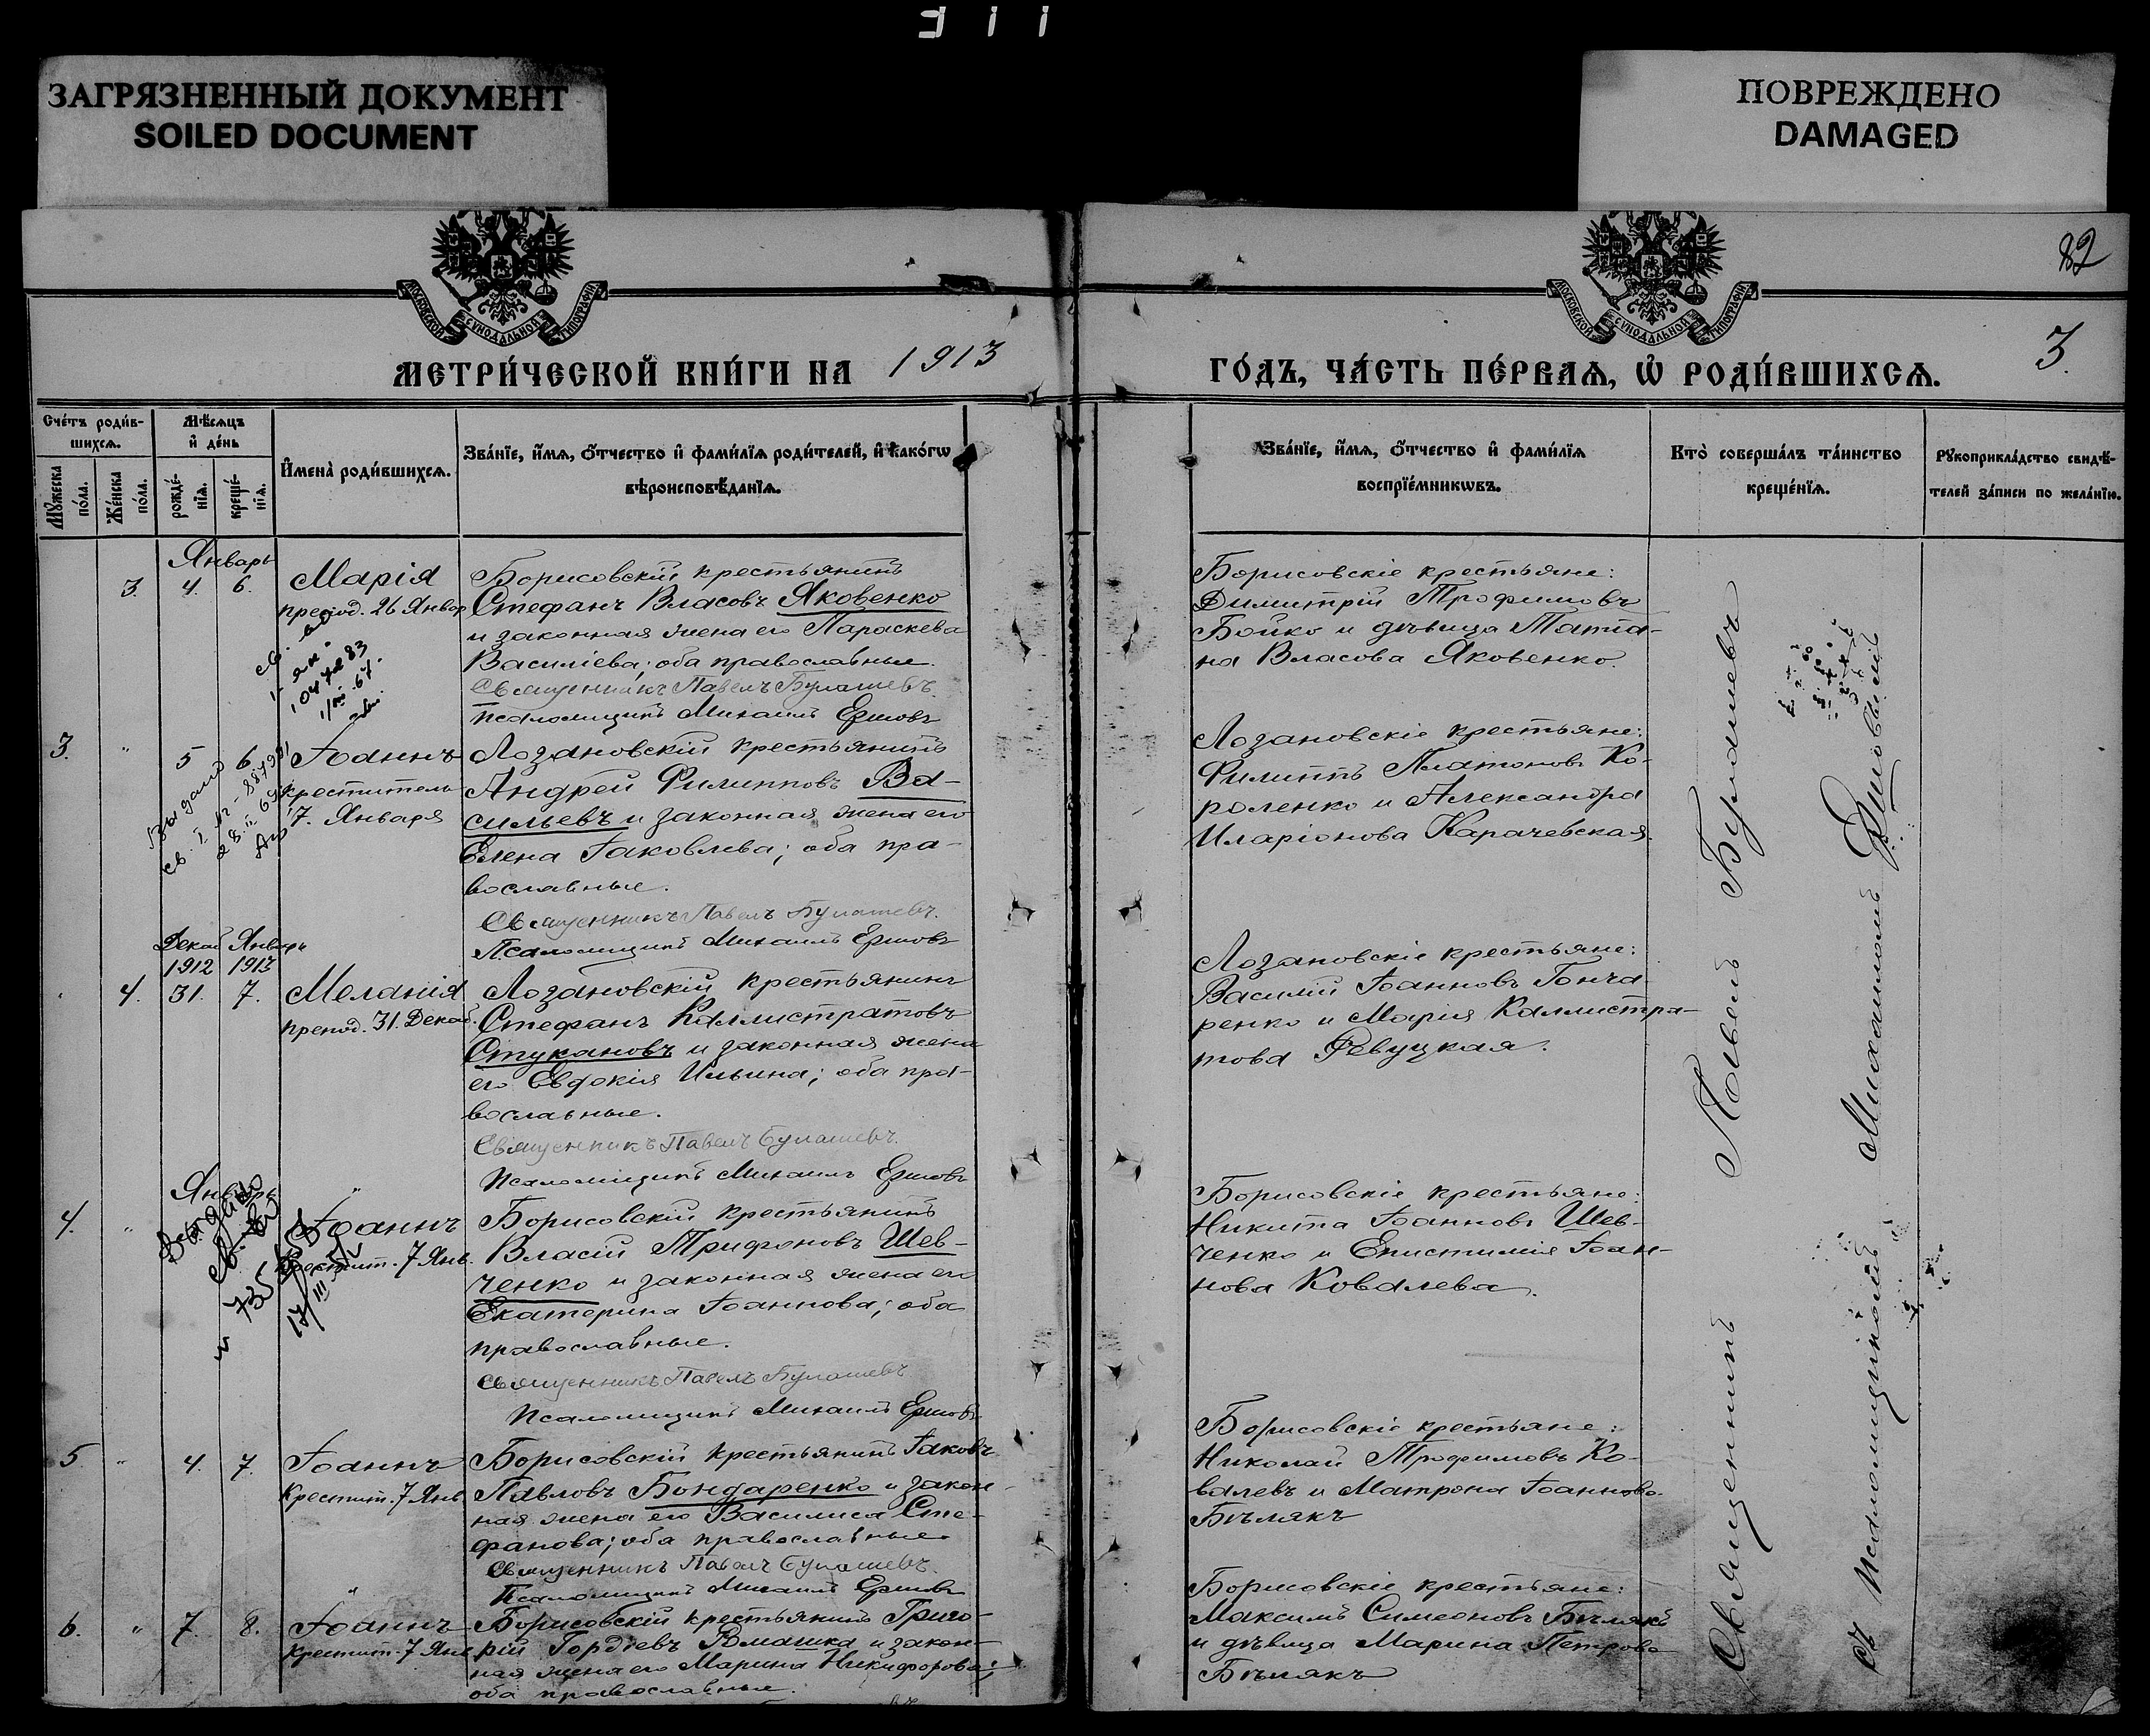 ЗАГРЯЗНЕННЫЙ ДОКУМЕНТ
SOILED DOCUMENT
ПОВРЕЖДЕНО
DAMAGED
82
МОСКОВСКОЙ СѴНОДАЛЬНОЙ ТИПОГРАФІИ
МОСКОВСКОЙ СѴНОДАЛЬНОЙ ТИПОГРАФІИ
МЕТРИ́ЧЕСКОЙ КНИ́ГИ НА 1913
ГО́ДЪ, ЧА́СТЬ ПЕ́РВАѦ, Ѡ РОДИ́ВШИХСѦ.
3.
Сче́тъ роди́в-
шихсѧ.
Мꙋ́жеска
по́ла.
Же́нска
по́ла.
Мѣ́сѧцъ
и҆ де́нь
рожде́-
нїѧ.
креще́-
нїѧ.
И҆мена̀ роди́вшихсѧ.
Зва́нїе, и҆́мѧ, ѻ҆́тчество и҆ фами́лїѧ роди́телей, и҆ како́гѡ
вѣроисповѣ́данїѧ.
Зва́нїе, и҆́мѧ, ѻ҆́тчество и҆ фами́лїѧ
воспрїе́мникѡвъ.
Кто̀ соверша́лъ та́инство
креще́нїѧ.
Рꙋкоприкла́дство свидѣ́-
телей за́писи по жела́нїю.
Январь
3. 4. 6. Марія
препод. 26 Январ
Борисовскій крестьянинъ
Стефанъ Власовъ Яковенко
и законная жена его Параскева
Василіева; оба православные.
Священникъ Павелъ Булашевъ.
Псаломщикъ Михаилъ Ершовъ
Борисовскіе крестьяне:
Димитрій Трофимовъ
Бойко и дѣвица Татіа-
на Власова Яковенко.
3. " 5 6 Іоаннъ
креститель
7. Января
Выдано
Лозановскій крестьянинъ
Андрей Филипповъ Ва-
сильевъ и законная жена его
Елена Іаковлева; оба пра-
вославные.
Священникъ Павелъ Булашевъ.
Псаломщикъ Михаилъ Ершовъ
Лозановскіе крестьяне:
Филиппъ Платоновъ Ко-
роленко и Александра
Иларіонова Карачевская.
Декаб Январь
1912 1913
4. 31. 7. Меланія
препод. 31. Декаб.
Лозановскій крестьянинъ
Стефанъ Каллистратовъ
Стукановъ и законная жена
его Евдокія Ильина; оба пра-
вославные.
Священникъ Павелъ Булашевъ.
Псаломщикъ Михаилъ Ершовъ
Лозановскіе крестьяне:
Василій Іоанновъ Гонча-
ренко и Марія Каллистра-
това Ревуцкая.
Январь
4. " Іоаннъ
Крестит. 7 Янв.
Выдано
Борисовскій крестьянинъ
Власій Трифоновъ Шев-
ченко и законная жена его
Екатерина Іоаннова; оба
православные.
Священникъ Павелъ Булашевъ
Псаломщикъ Михаилъ Ершовъ
Борисовскіе крестьяне:
Никита Іоанновъ Шев-
ченко и Епистимія Іоан-
нова Ковалева.
5 " 4. 7. Іоаннъ
Крестит. 7 Янв
Борисовскій крестьянинъ Іаковъ
Павловъ Бондаренко и закон-
ная жена его Василиса Сте-
фанова; оба православные
Священникъ Павелъ Булашевъ.
Псаломщикъ Михаилъ Ершовъ
Борисовскіе крестьяне:
Николай Трофимовъ Ко-
валевъ и Матрона Іоаннова
Бѣлякъ
6. " 7. 8. Іоаннъ
Крестит. 7 Янв
Борисовскій крестьянинъ Григо-
рій Гордіевъ Ромашка и закон-
ная жена его Марина Никифорова;
оба православные.
Борисовскіе крестьяне:
Максимъ Симеоновъ Бѣлякъ
и дѣвица Марина Петрова
Бѣлякъ
Священникъ Павелъ Булашевъ
съ Псаломщикомъ Михаиломъ Ершовымъ